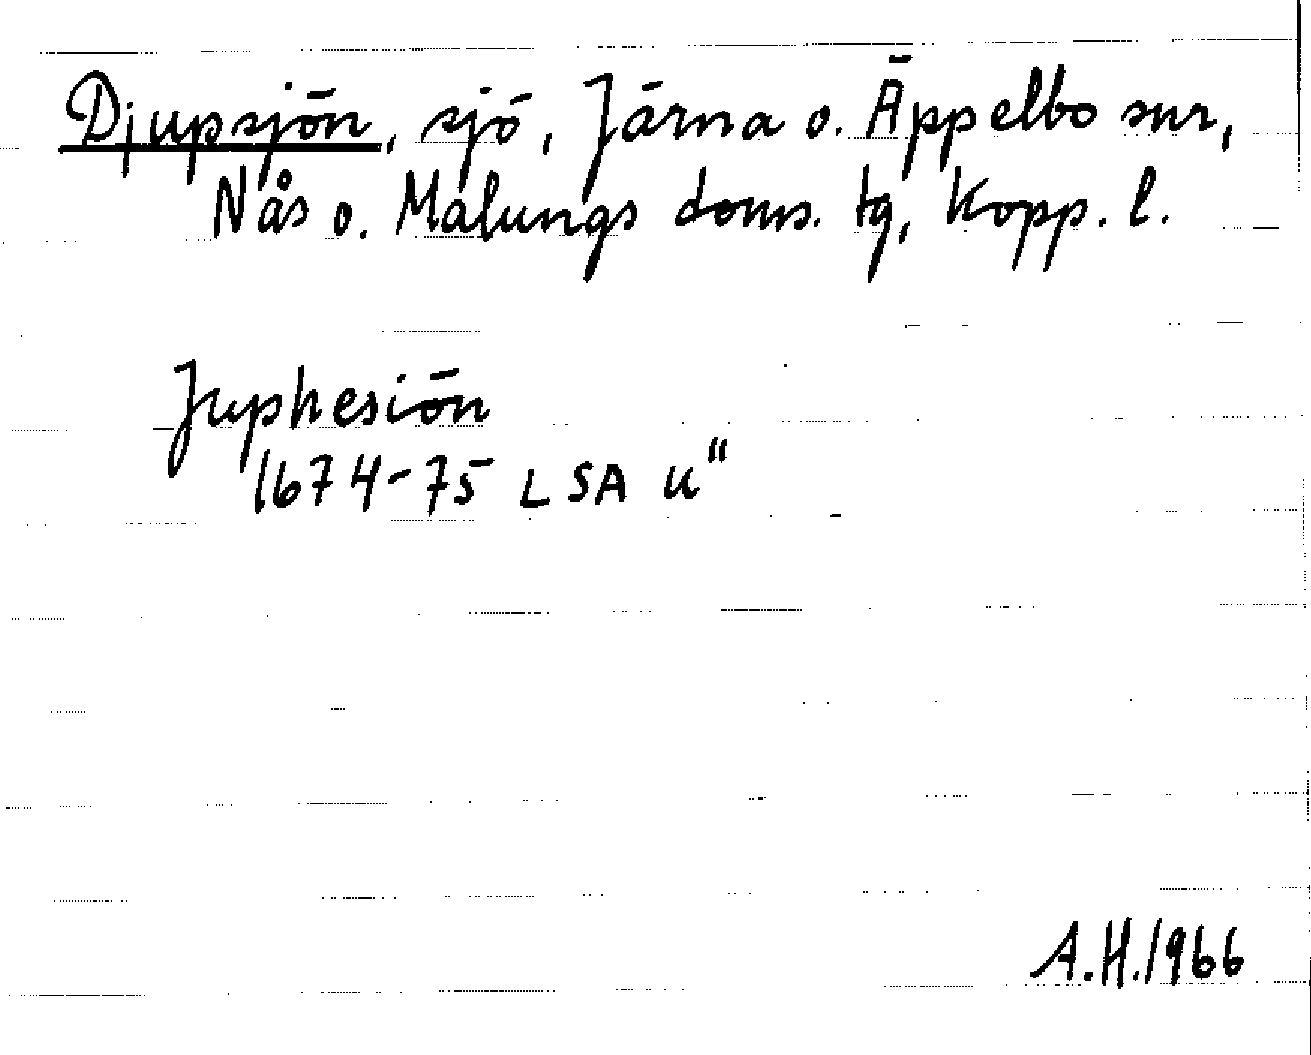 Djupsjön, sjö, Järna o. Äppelbo snr,
Nås o. Malungs doms. tg, Kopp. l.
Juphesiön
1674-75 LSA u"
A.H. 1966